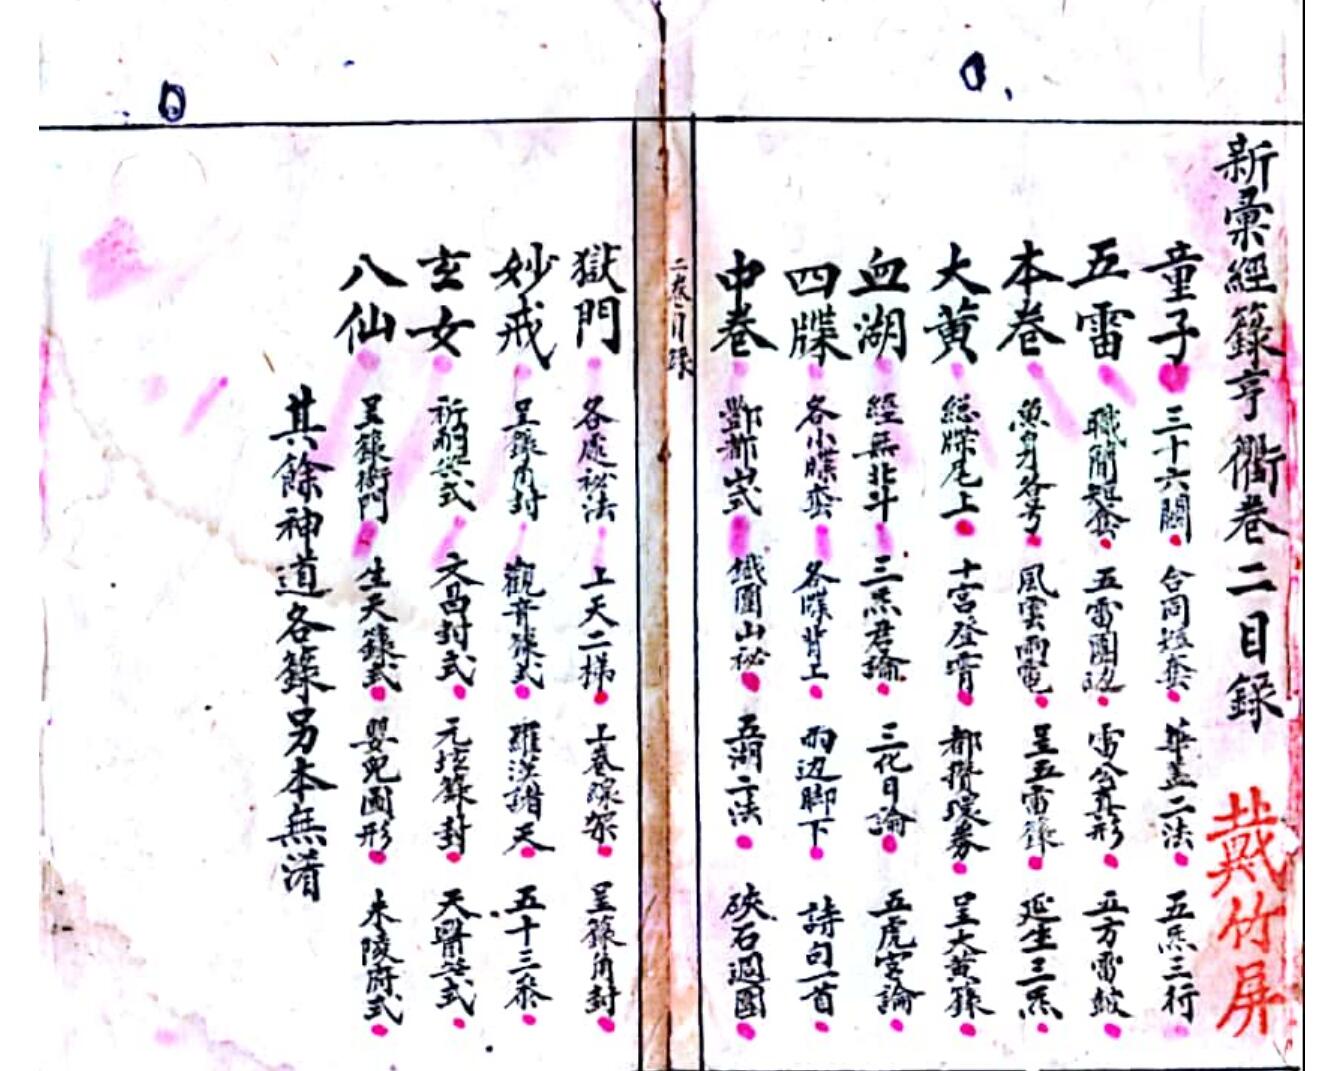 新彙經籙亨衢卷二目録
戴竹屏
童子 三十六關 合同短套 華蓋二法 五炁三行
五雷 職簡短套 五雷團 雷公真形 五方雷
本卷 各号 風雲雨電 呈五雷籙 延生三炁
大黄 総牒尾上 十宮登霄 都攢環券 呈大黄籙
血湖 經無北斗 三炁君論 三花日論 五虎宮論
四牒 各小牒套 各牒背上 両边脚下 詩句一首
中卷 酆都山式 鐵圍山秘 五湖六法 硤石週圍
二卷目録
獄門 各處秘法 上天二梯 上卷 呈籙角封
妙戒 呈籙角封 觀音籙式 羅漢諸天 五十三參
玄女 祈嗣式 文昌封式 元坛籙封 天醫式
八仙 呈籙衙門 生天籙式 嬰兒圖形 朱陵府式
其餘神道各籙另本無淆